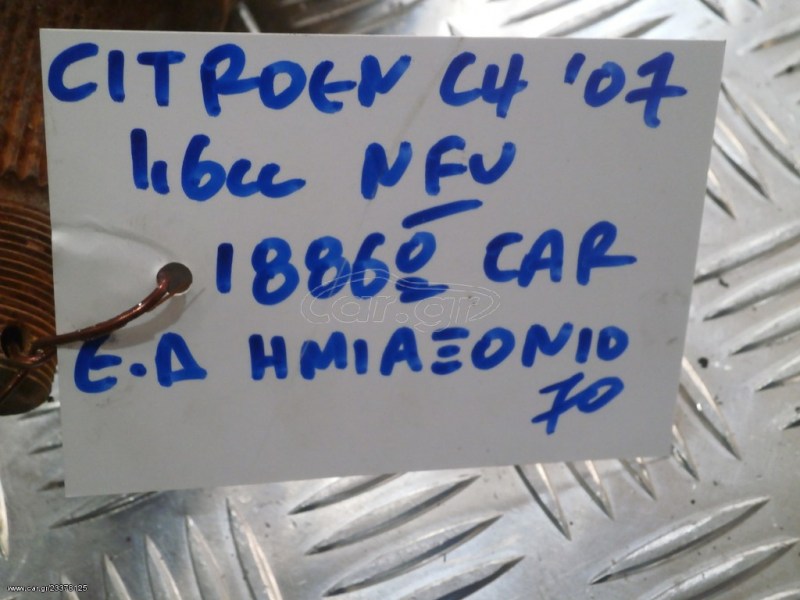 CITROEN C4 '07
1.6cc NFU
18860 CAR
Ε.Δ ΗΜΙΑΞΟΝΙΟ
70
car.gr
www.car.gr/23378125